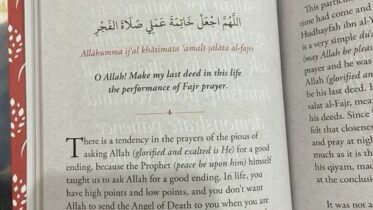 اللَّهُمَّ اجْعَلْ خَاتِمَةَ عَمَلِي صَلَاةَ الْفَجْرِ
Allāhumma ij'al khātimata 'amalī ṣalāta al-fajri
O Allah! Make my last deed in this life
the performance of Fajr prayer.
There is a tendency in the prayers of the pious of
asking Allah (glorified and exalted is He) for a good
ending, because the Prophet (peace be upon him) himself
taught us to ask Allah for a good ending. In life, you
have high points and low points, and you don't want
Allah to send the Angel of Death to you when you are
This particular
time had come and
Hudhayfah ibn al-Y
is a very simple du'ā
(may Allah be please
prayer and he was
Allah (glorified and
be his last deed. H
salat al-Fajr, mean
his deeds. Since
felt that closenes
and pray at night
much as it is th
his qiyam, nache
at the conclusi
It was not a